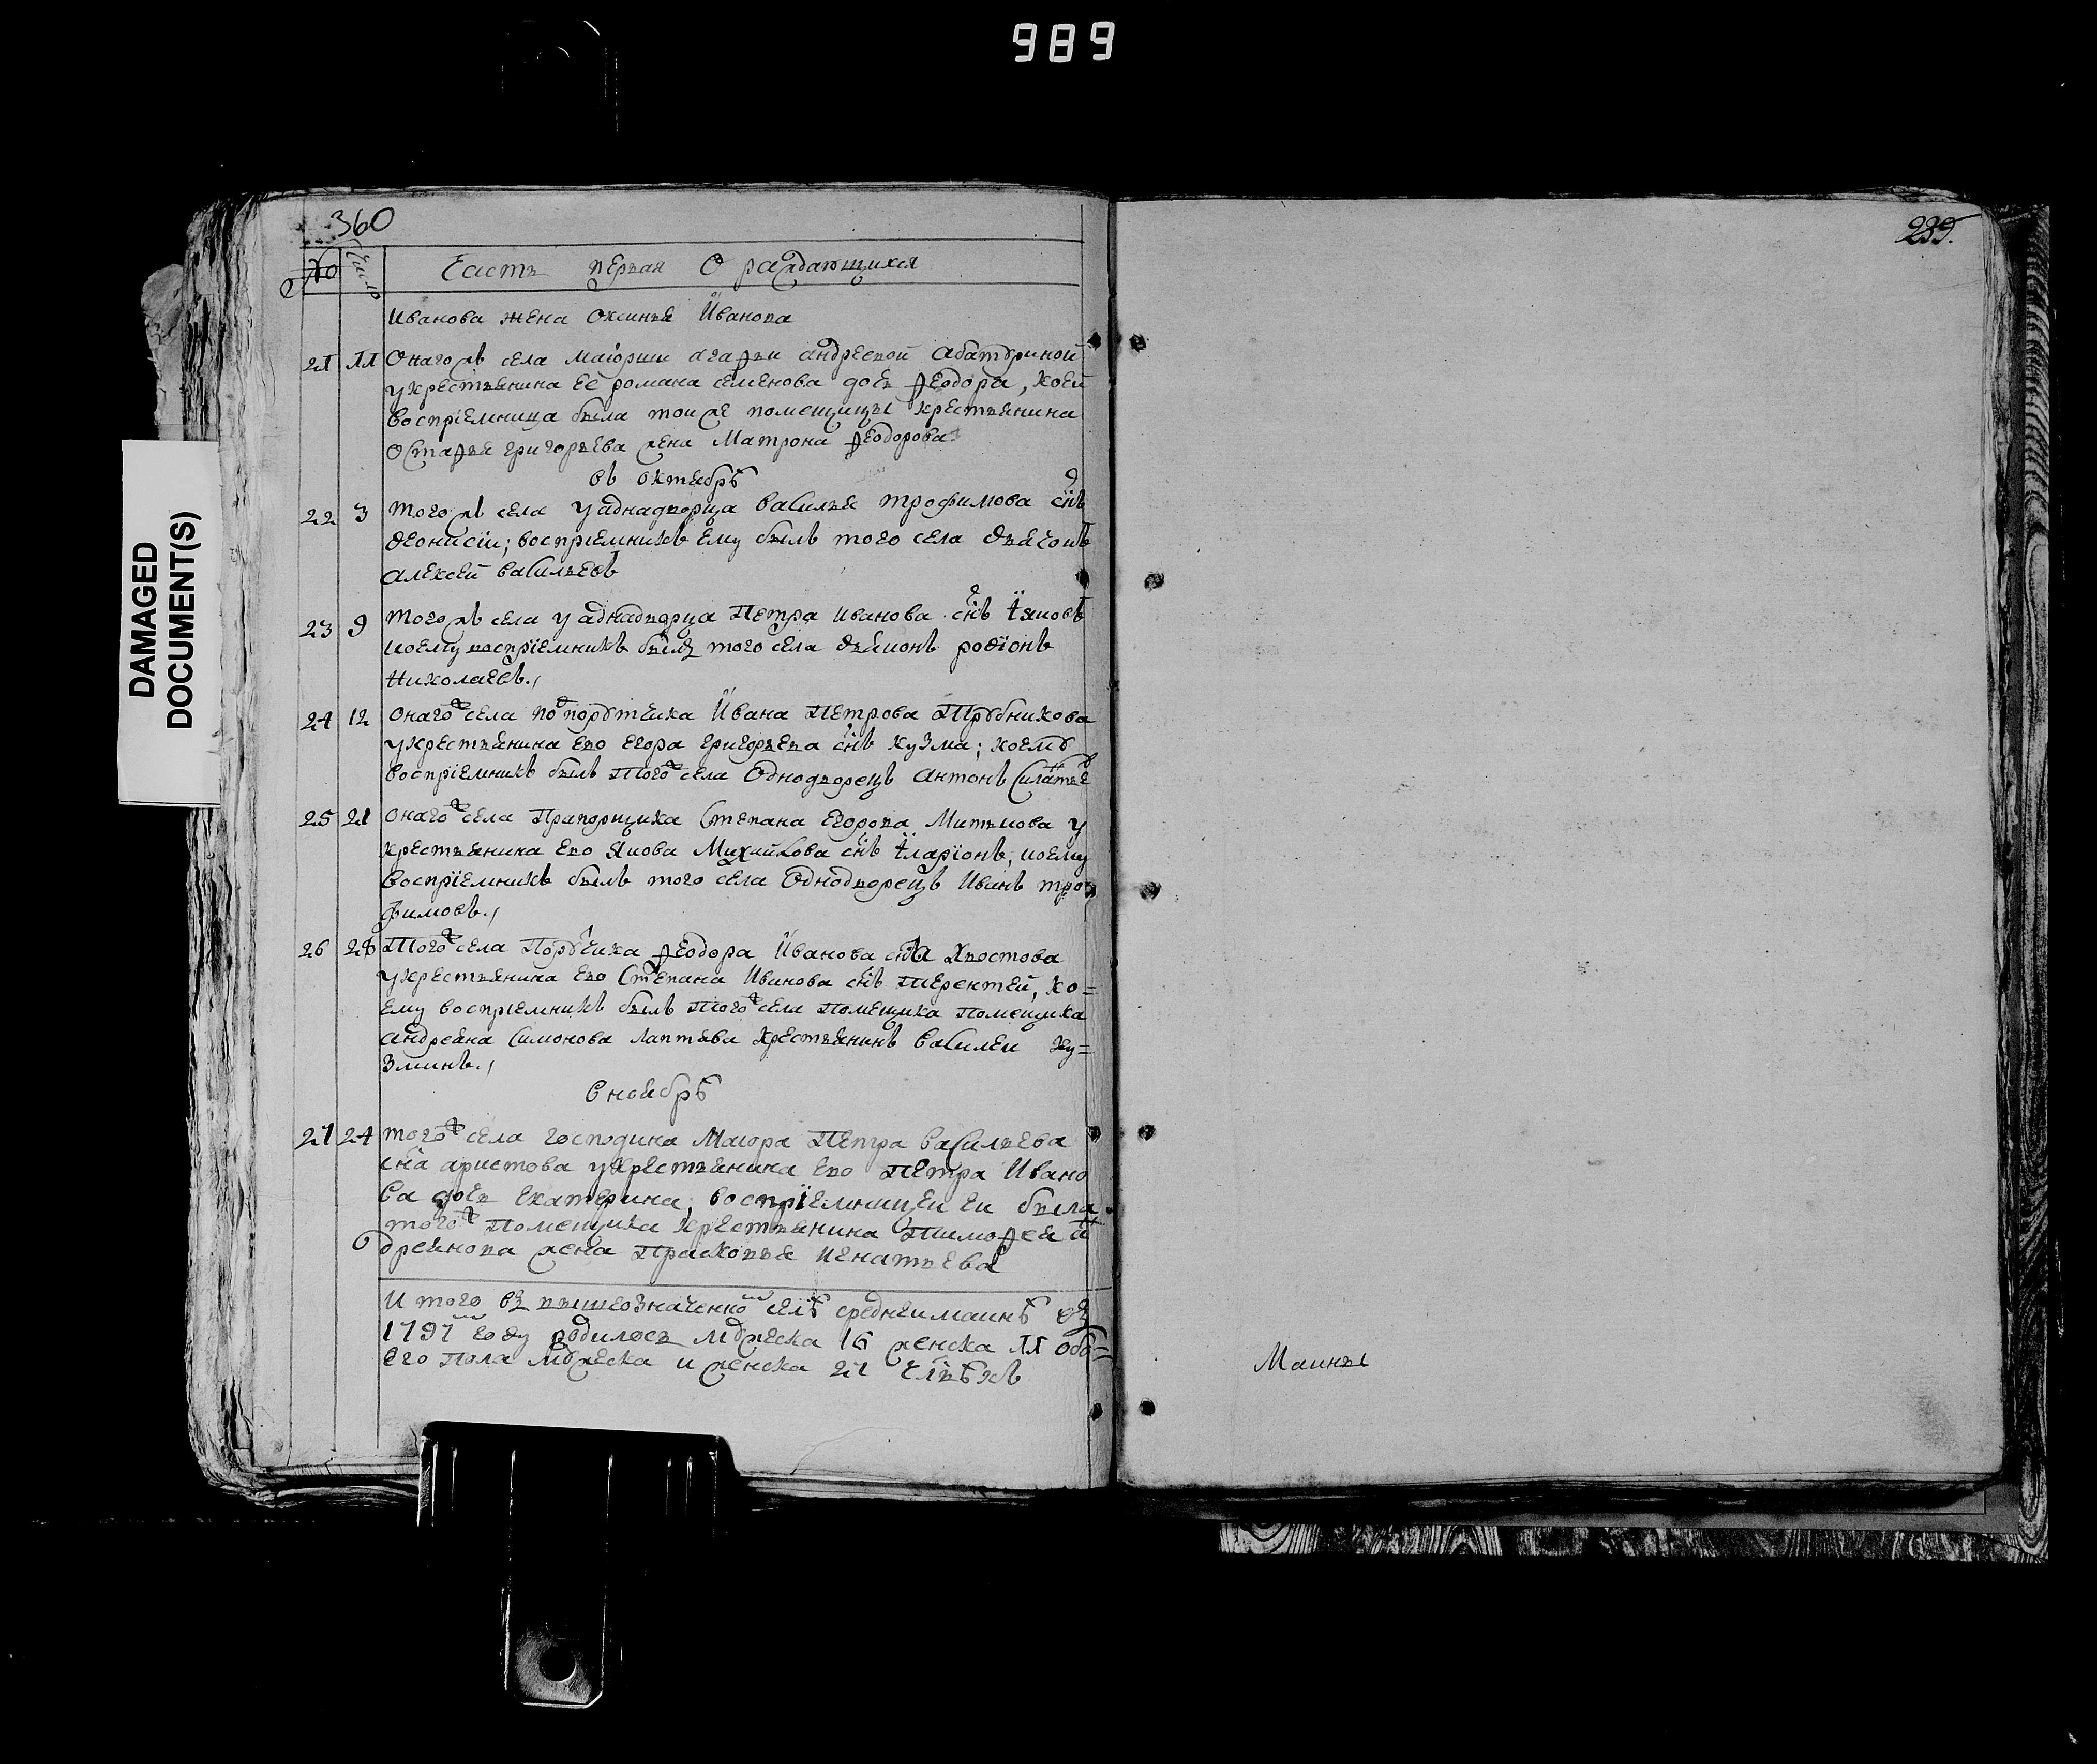 989
DAMAGED
DOCUMENT(S)
360
№ Число Часть первая О раждающихся
Иванова жена Оксинья Иванова
21 11 Онагожъ села маіорши агаѳьи андреевой
укрестьянина ее романа семенова дочь ѳеодора, коей
воспріемница была тоиже помещицы крестьянина
Остаѳья григорьева жена Матрона ѳеодорова
въ октябрѣ
22 3 тогожъ села уаднадворца василья трофимова снъ
деонисіи; воспріемникъ ему былъ того села дьячокъ
алексей васильевъ
23 9 тогожъ села уаднадворца Петра иванова снъ Іяковъ
коему воспріемникъ былъ того села дьяконъ родіонъ
Николаевъ./
24 12 онагож села подпорутчика Ивана Петрова Трубникова
укрестьянина ево егора григорьева снъ кузма; коему
воспріемникъ былъ Тогож села Однодворецъ антонъ
25 21 онагож села Прапорщика Степана Егорова Митькова у
крестьянина ево Якова Михайлова снъ Іларіонъ, коему
воспріемникъ былъ того села Однодворецъ Иванъ тро=
фимовъ./
26 28 Тогож села Поручика ѳеодора Иванова сна Хвостова
укрестьянина ево Степана Иванова снъ Терентей, ко=
ему воспріемникъ былъ Тогож села Помещика Помещика
андреяна Симонова лаптева крестьянинъ василеи ку=
зминъ./
в ноябрѣ
27 24 тогож села господина Маіора Петра васильева
сна аристова укрестьянина ево Петра Ивано
ва дочь екатерина, воспріемницеи еи была
тогож Помещика крестьянина Тимоѳея ан
дреянова жена Прасковья игнатьева
И того въ вышеозначенном селѣ среднеи маинѣ въ
1797м году родилось мужеска 16 женска 11 обо=
его пола мужеска и женска 27 члвѣкъ
239.
Маины